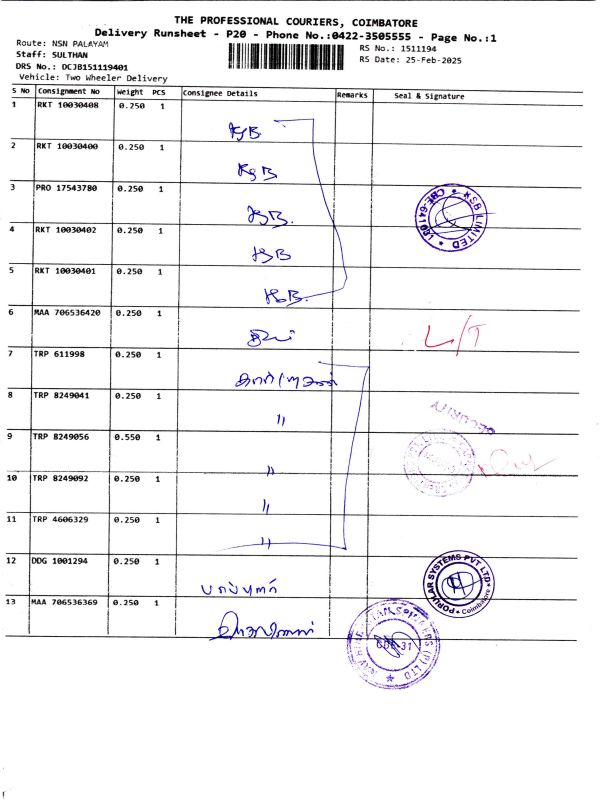 THE PROFESSIONAL COURIERS, COIMBATORE
Delivery Runsheet - P20 - Phone No.:0422-3505555 - Page No.:1
Route: NSN PALAYAM
RS No.: 1511194
Staff: SULTHAN
RS Date: 25-Feb-2025
DRS No.: DCJB151119401
Vehicle: Two Wheeler Delivery
S No Consignment No Weight PCS Consignee Details Remarks Seal & Signature
1 RKT 10030408 0.250 1 KSB
2 RKT 10030400 0.250 1 KSB
3 PRO 17543780 0.250 1 KSB.
KSB LIMITED ★ CBE-641
4 RKT 10030402 0.250 1 KSB
5 RKT 10030401 0.250 1 KSB.
6 MAA 706536420 0.250 1 L/T
7 TRP 611998 0.250 1
8 TRP 8249041 0.250 1 "
SECURITY
9 TRP 8249056 0.550 1 "
10 TRP 8249092 0.250 1 "
11 TRP 4606329 0.250 1 "
12 DDG 1001294 0.250 1 பாப்புலர்
POPULAR SYSTEMS PVT LTD ★ Coimbatore
13 MAA 706536369 0.250 1
CBE-31
(P) LTD